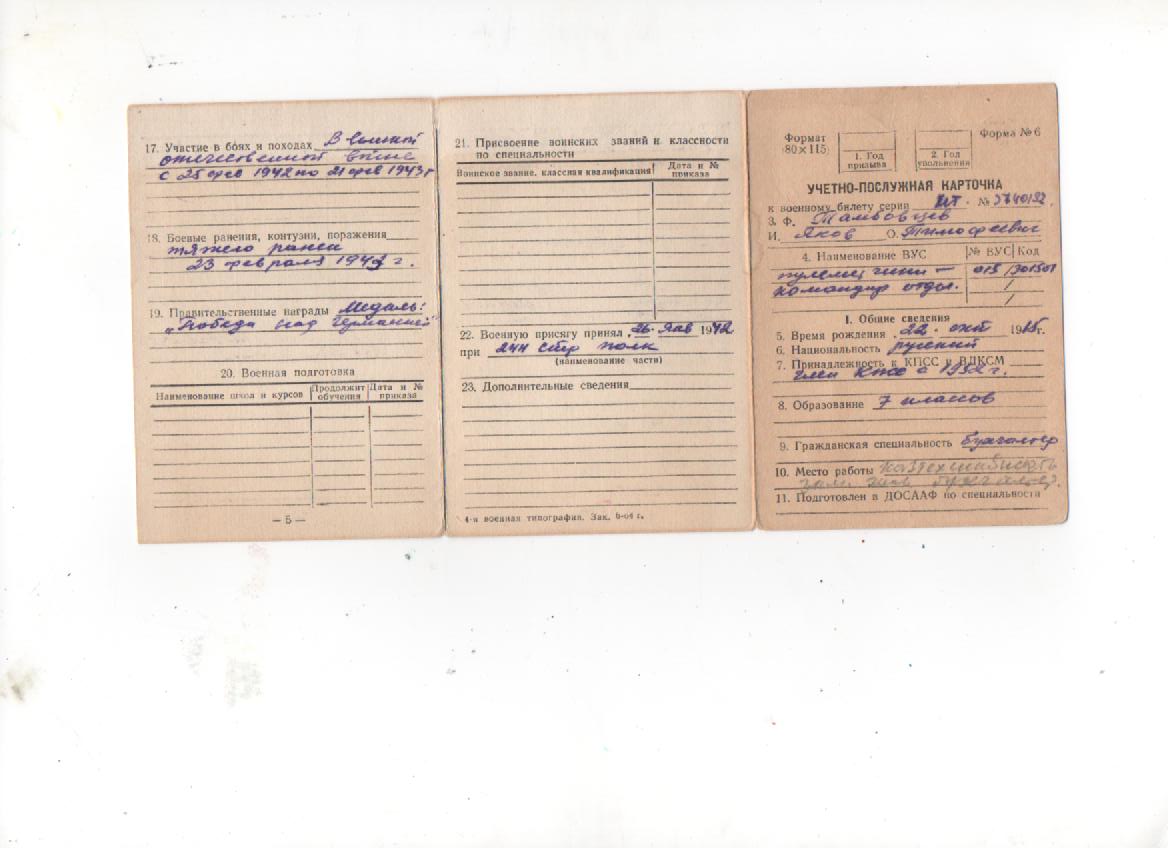 17. Участие в боях и походах В великой
отечественной войне
с 25 фев 1942 по 21 фев 1943 г
18. Боевые ранения, контузии, поражения
тяжело ранен
23 февраля 1943 г.
19. Правительственные награды Медаль:
„Победа над Германией"
20. Военная подготовка
Наименование школ и курсов
Продолжит обучения
Дата и № приказа
— 5 —
21. Присвоение воинских званий и классности
по специальности
Воинское звание, классная квалификация
Дата и № приказа
22. Военную присягу принял 26 янв 1942
при 244 стр полк
(наименование части)
23. Дополнительные сведения
4-я военная типография. Зак.
Формат
(80×115)
1. Год
призыва
2. Год
увольнения
Форма № 6
УЧЕТНО-ПОСЛУЖНАЯ КАРТОЧКА
к военному билету серии № 3740192
3. Ф. Тамбовцев
И. Яков О. Тимофеевич
4. Наименование ВУС № ВУС Код
015
командир отдел.
I. Общие сведения
5. Время рождения 22 окт 1915 г.
6. Национальность русский
7. Принадлежность к КПСС и ВЛКСМ
член КПСС с 1952 г.
8. Образование 7 классов
9. Гражданская специальность бухгалтер
10. Место работы
зам. глав. бухгалтер.
11. Подготовлен в ДОСААФ по специальности